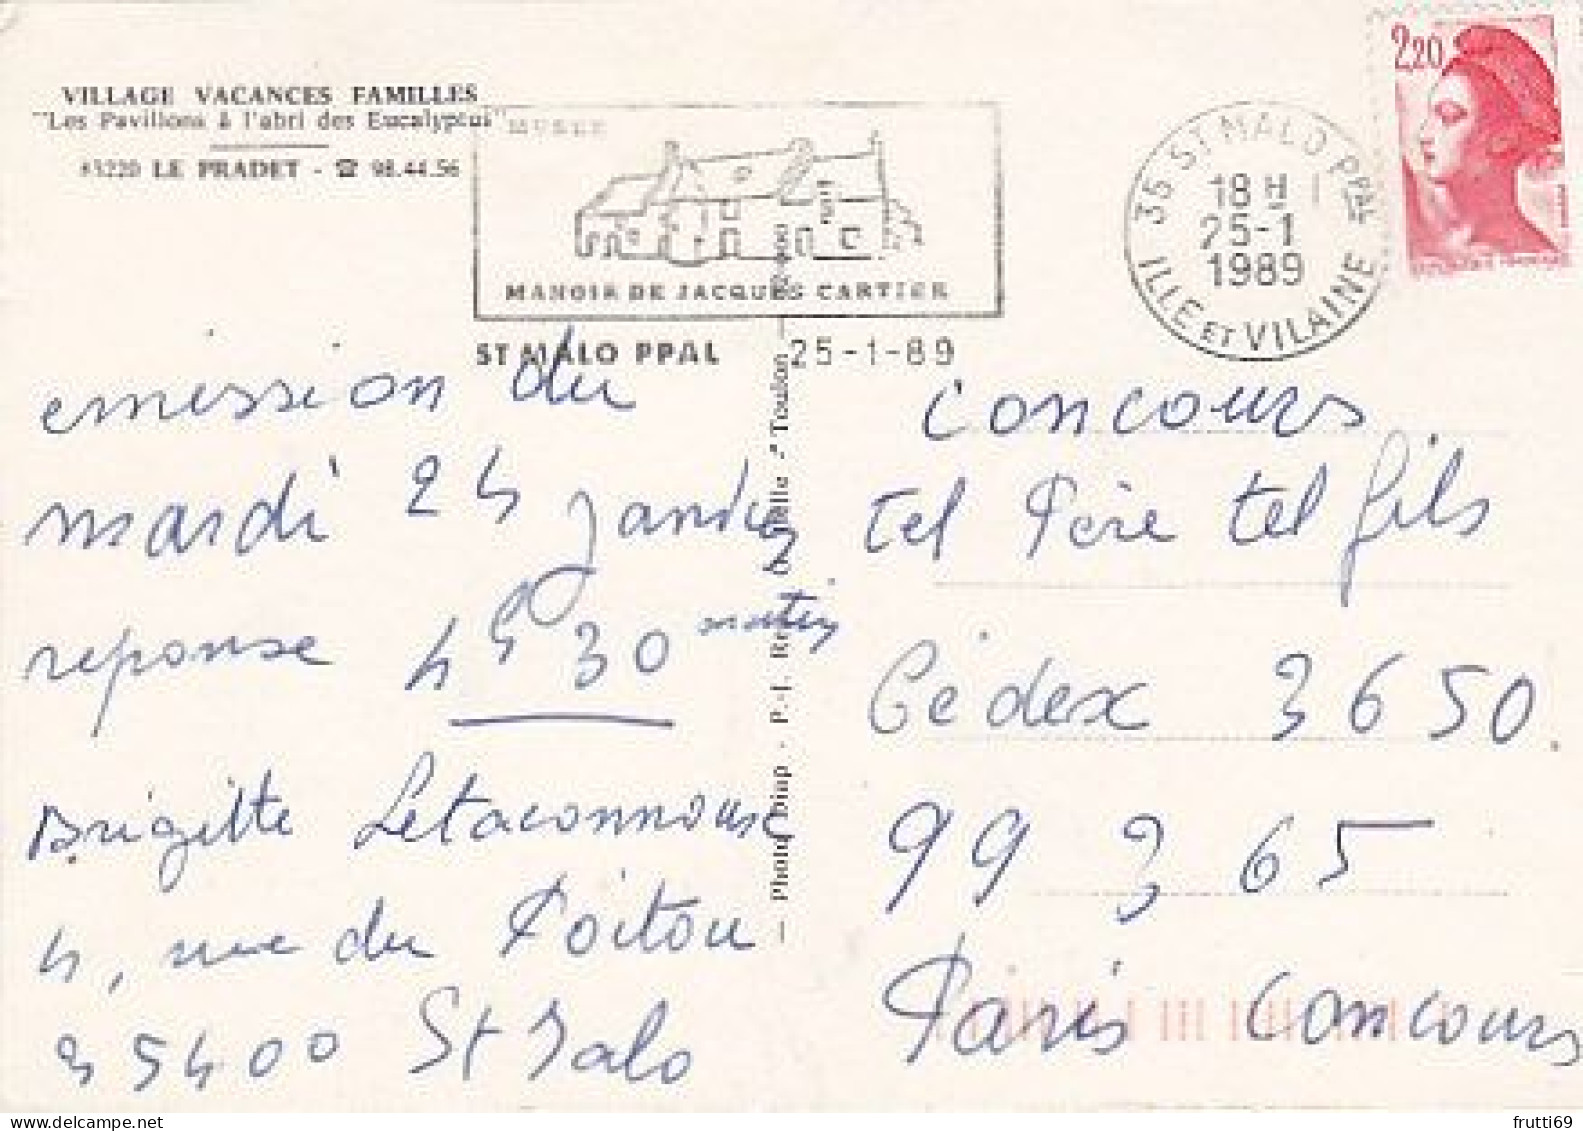 VILLAGE VACANCES FAMILLES
"Les Pavillons à l'abri des Eucalyptus"
83220 LE PRADET - ☎ 98.44.56
MUSEE
MANOIR DE JACQUES CARTIER
ST MALO PPAL 25-1-89
35 ST MALO PPAL
18 H
25-1
1989
ILLE ET VILAINE
2,20
emission du
mardi 24 Janvier
reponse 4h30 matin
Brigitte Letaconnoux
4, rue du Poitou
35400 St Malo
Photo Diap - P.-J.
Toulon
concours
tel Père tel fils
Cédex 3650.
99 365
Paris concours
frutti69